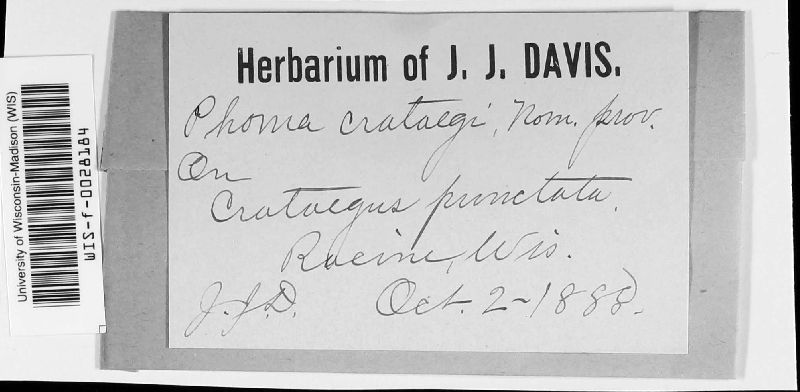 Herbarium of J. J. DAVIS.
Phoma crataegi, Nom. prov.
On
Crataegus punctata.
Racine, Wis.
J.J.D. Oct. 2-1888.
University of Wisconsin-Madison (WIS)
WIS-f-0028184